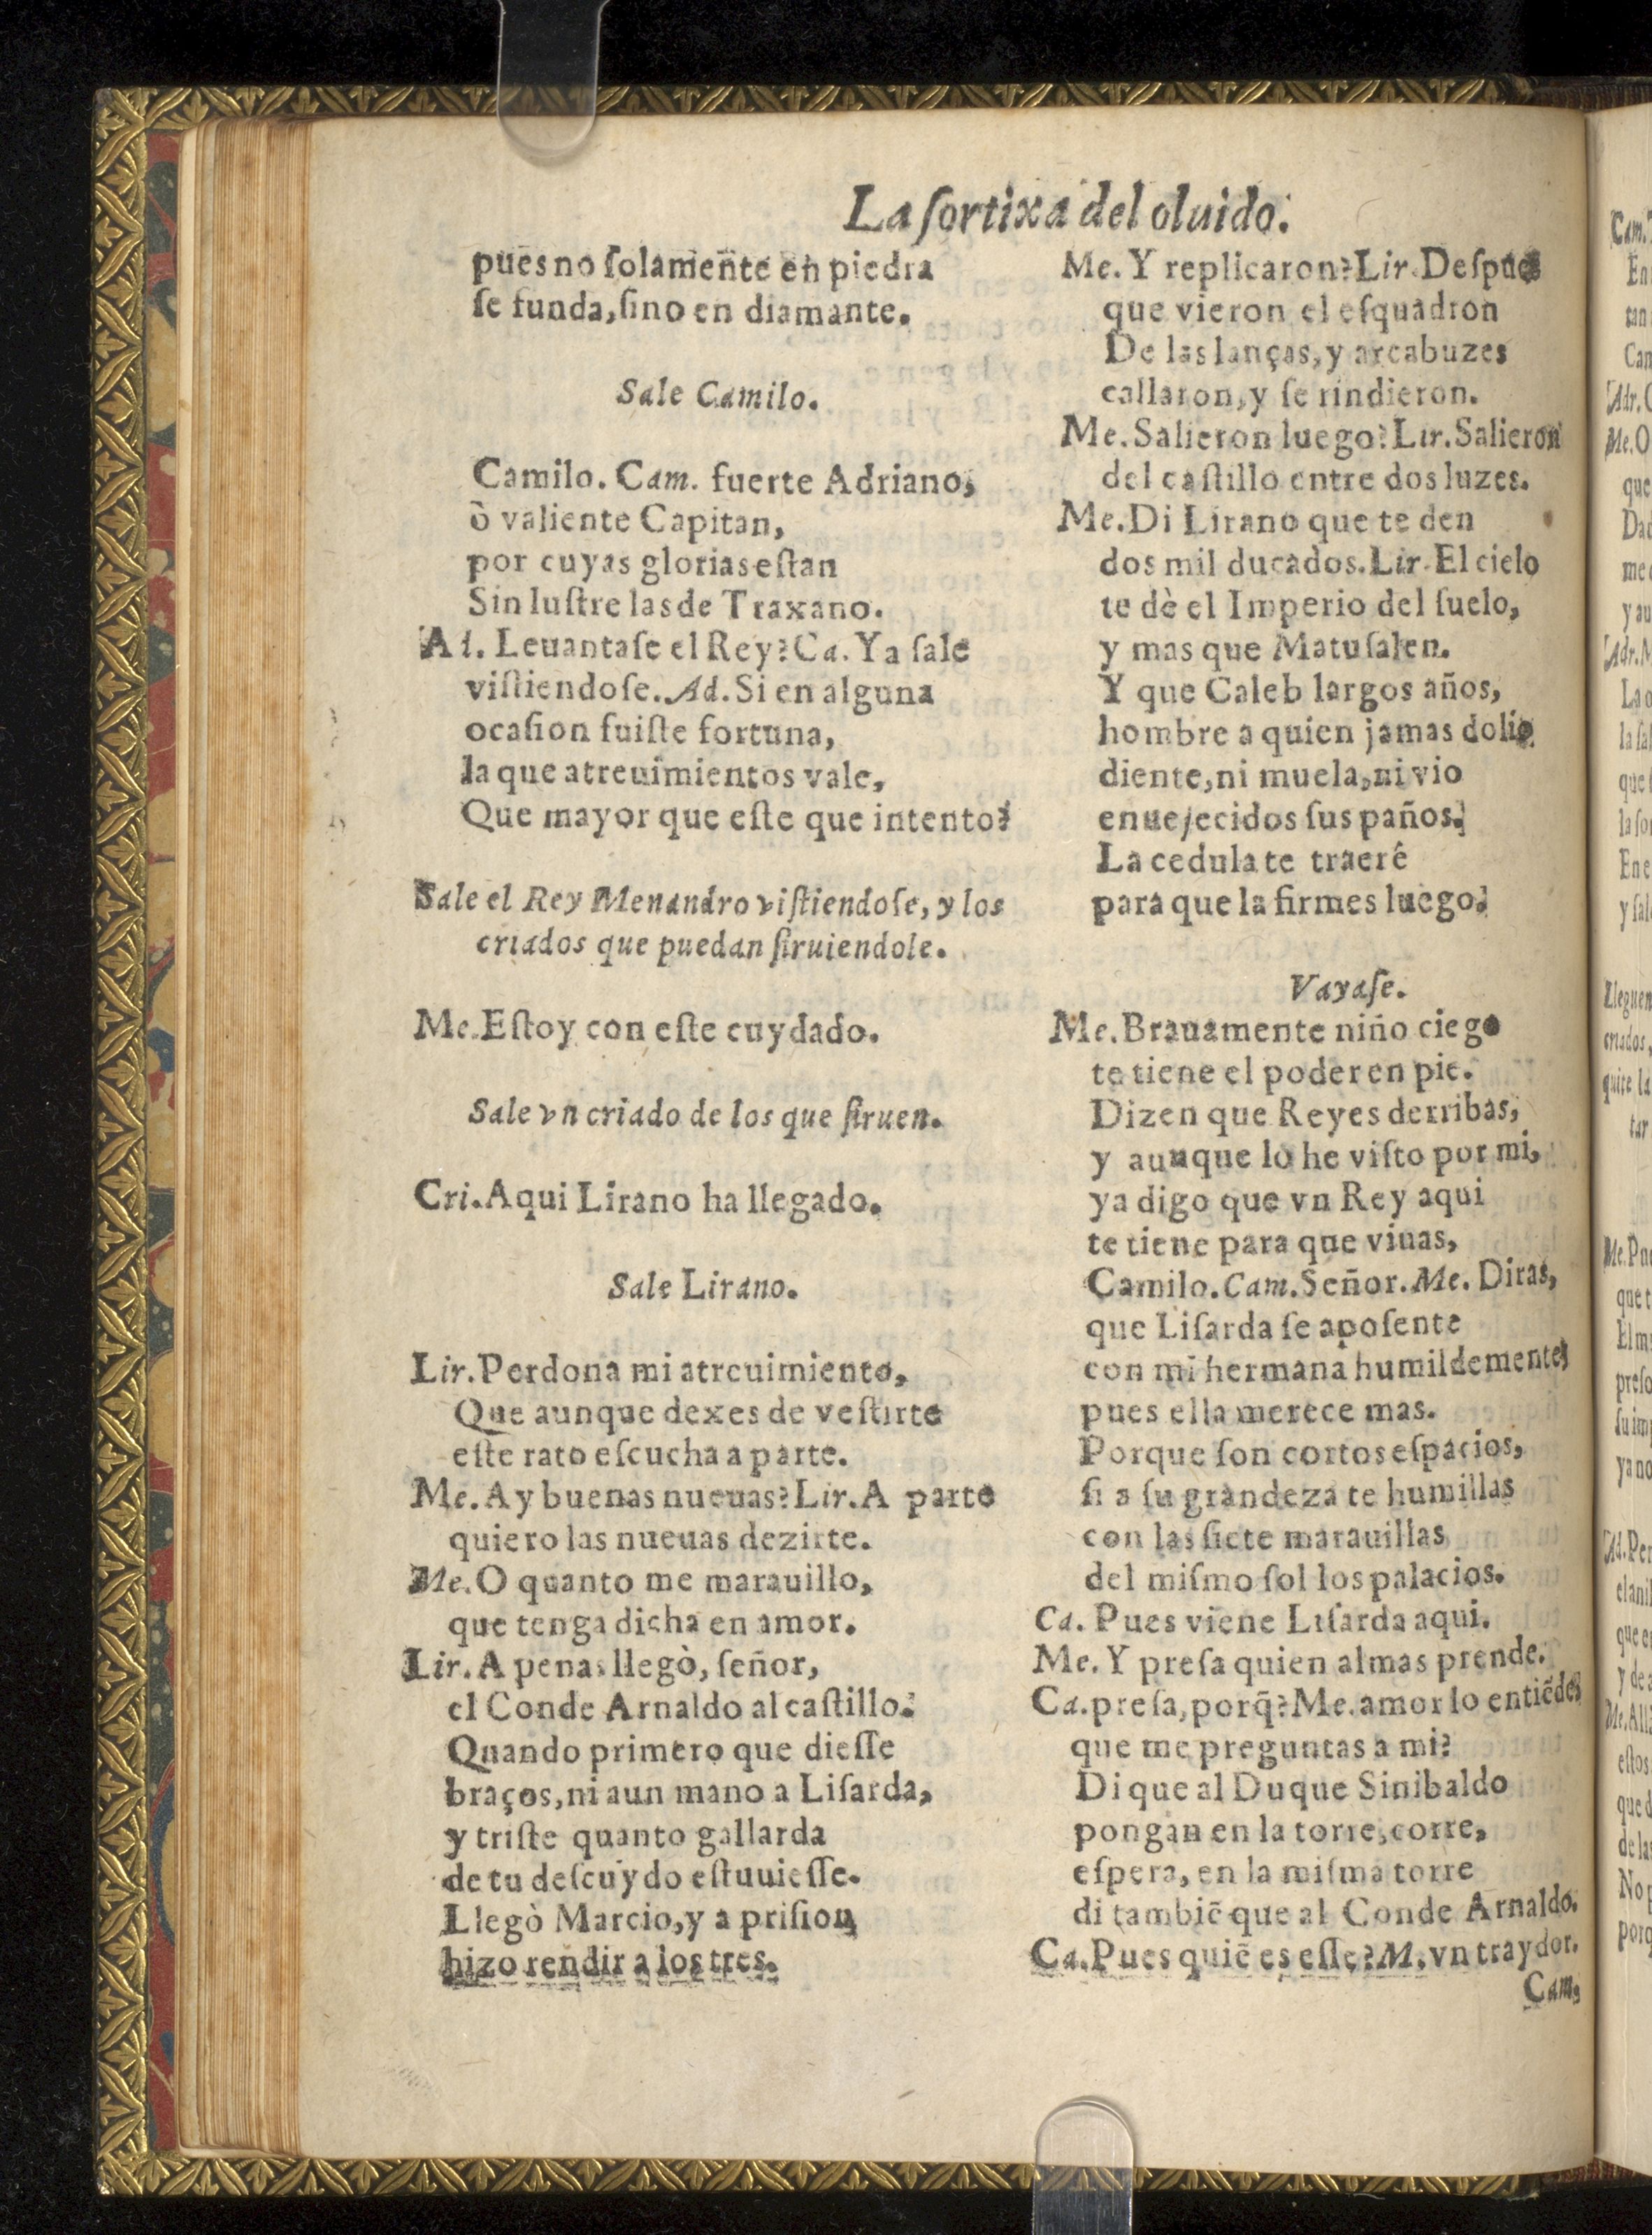 La ſortixa del oluido.
pues no ſolamente en piedra
ſe funda, ſino en diamante.
Sale Camilo.
Camilo. Cam. fuerte Adriano,
ò valiente Capitan,
por cuyas glorias eſtan
Sin luſtre las de Traxano.
Ad. Leuantaſe el Rey? Ca. Ya ſale
viſtiendoſe. Ad. Si en alguna
ocaſion fuiſte fortuna,
la que atreuimientos vale,
Que mayor que eſte que intento?
Sale el Rey Menandro viſtiendoſe, y los
criados que puedan ſiruiendole.
Me. Eſtoy con eſte cuydado.
Sale vn criado de los que ſiruen.
Cri. Aqui Lirano ha llegado.
Sale Lirano.
Lir. Perdona mi atreuimiento,
Que aunque dexes de veſtirte
eſte rato eſcucha a parte.
Me. Ay buenas nueuas? Lir. A parte
quiero las nueuas dezirte.
Me. O quanto me marauillo,
que tenga dicha en amor.
Lir. A penas llegò, ſeñor,
el Conde Arnaldo al caſtillo.
Quando primero que dieſſe
braços, ni aun mano a Liſarda,
y triſte quanto gallarda
de tu deſcuydo eſtuuieſſe.
Llegò Marcio, y a priſion
hizo rendir a los tres.
Me. Y replicaron? Lir. Deſpues
que vieron el eſquadron
De las lanças, y arcabuzes
callaron, y ſe rindieron.
Me. Salieron luego? Lir. Salieron
del caſtillo entre dos luzes.
Me. Di Lirano que te den
dos mil ducados. Lir. El cielo
te dè el Imperio del ſuelo,
y mas que Matuſalen.
Y que Caleb largos años,
hombre a quien jamas dolio
diente, ni muela, ni vio
enuejecidos ſus paños.
La cedula te traerê
para que la firmes luego.
Vayaſe.
Me. Brauamente niño ciego
te tiene el poder en pie.
Dizen que Reyes derribas,
y aunque lo he viſto por mi,
ya digo que vn Rey aqui
te tiene para que viuas,
Camilo. Cam. Señor. Me. Diras,
que Liſarda ſe apoſente
con mi hermana humildemente,
pues ella merece mas.
Porque ſon cortos eſpacios,
ſi a ſu grandeza te humillas
con las ſiete marauillas
del miſmo ſol los palacios.
Ca. Pues viene Liſarda aqui.
Me. Y preſa quien almas prende.
Ca. preſa, porq̃? Me. amor lo entiẽde,
que me preguntas a mi?
Di que al Duque Sinibaldo
pongan en la torre, corre,
eſpera, en la miſma torre
di tambiẽ que al Conde Arnaldo.
Ca. Pues quiẽ es eſſe? M. vn traydor.
Cam,